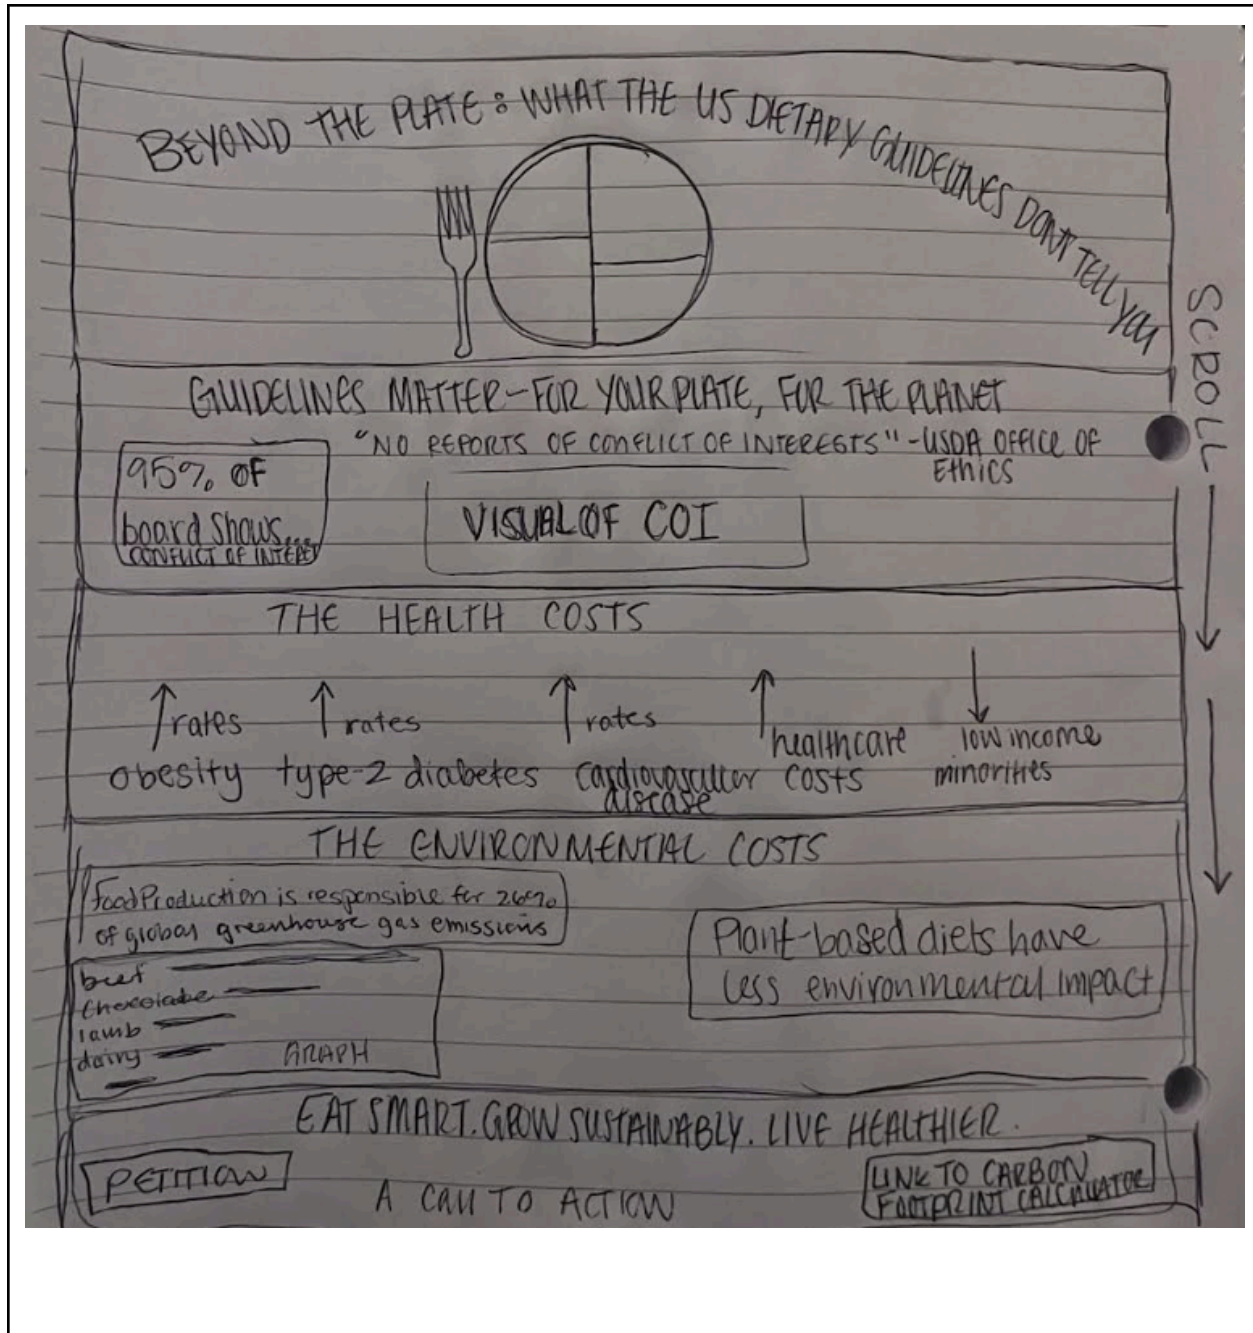 BEYOND THE PLATE: WHAT THE US DIETARY GUIDELINES DON'T TELL YOU
SCROLL
GUIDELINES MATTER-FOR YOUR PLATE, FOR THE PLANET
"NO REPORTS OF CONFLICT OF INTERESTS" -USDA OFFICE OF
ETHICS
95% OF
board shows...
CONFLICT OF INTEREST
VISUAL OF COI
THE HEALTH COSTS
rates
obesity
rates
type-2 diabetes
rates
cardiovascular
disease
healthcare
costs
low income
minorities
THE ENVIRONMENTAL COSTS
Food Production is responsible for 26%
of global greenhouse gas emissions
beef
chocolate
lamb
dairy
GRAPH
Plant-based diets have
less environmental impact
EAT SMART. GROW SUSTAINABLY. LIVE HEALTHIER.
PETITION
A CALL TO ACTION
LINK TO CARBON
FOOTPRINT CALCULATOR